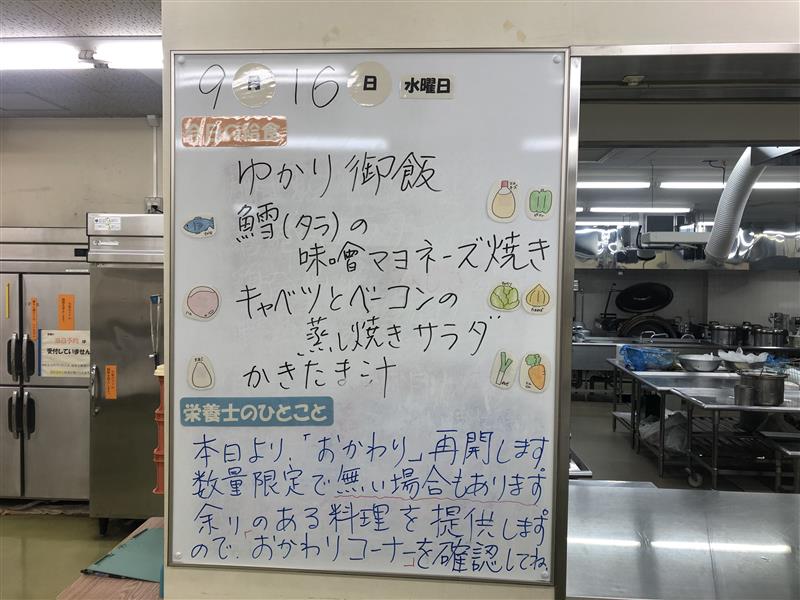 9月16日 水曜日
今日の給食
ゆかり御飯
鱈(タラ)の
味噌マヨネーズ焼き
キャベツとベーコンの
蒸し焼きサラダ
かきたま汁
栄養士のひとこと
本日より、「おかわり」再開します
数量限定で無い場合もあります。
余りのある料理を提供します。
ので、「おかわりコーナー」を確認してね。
当日予約は
受付していません